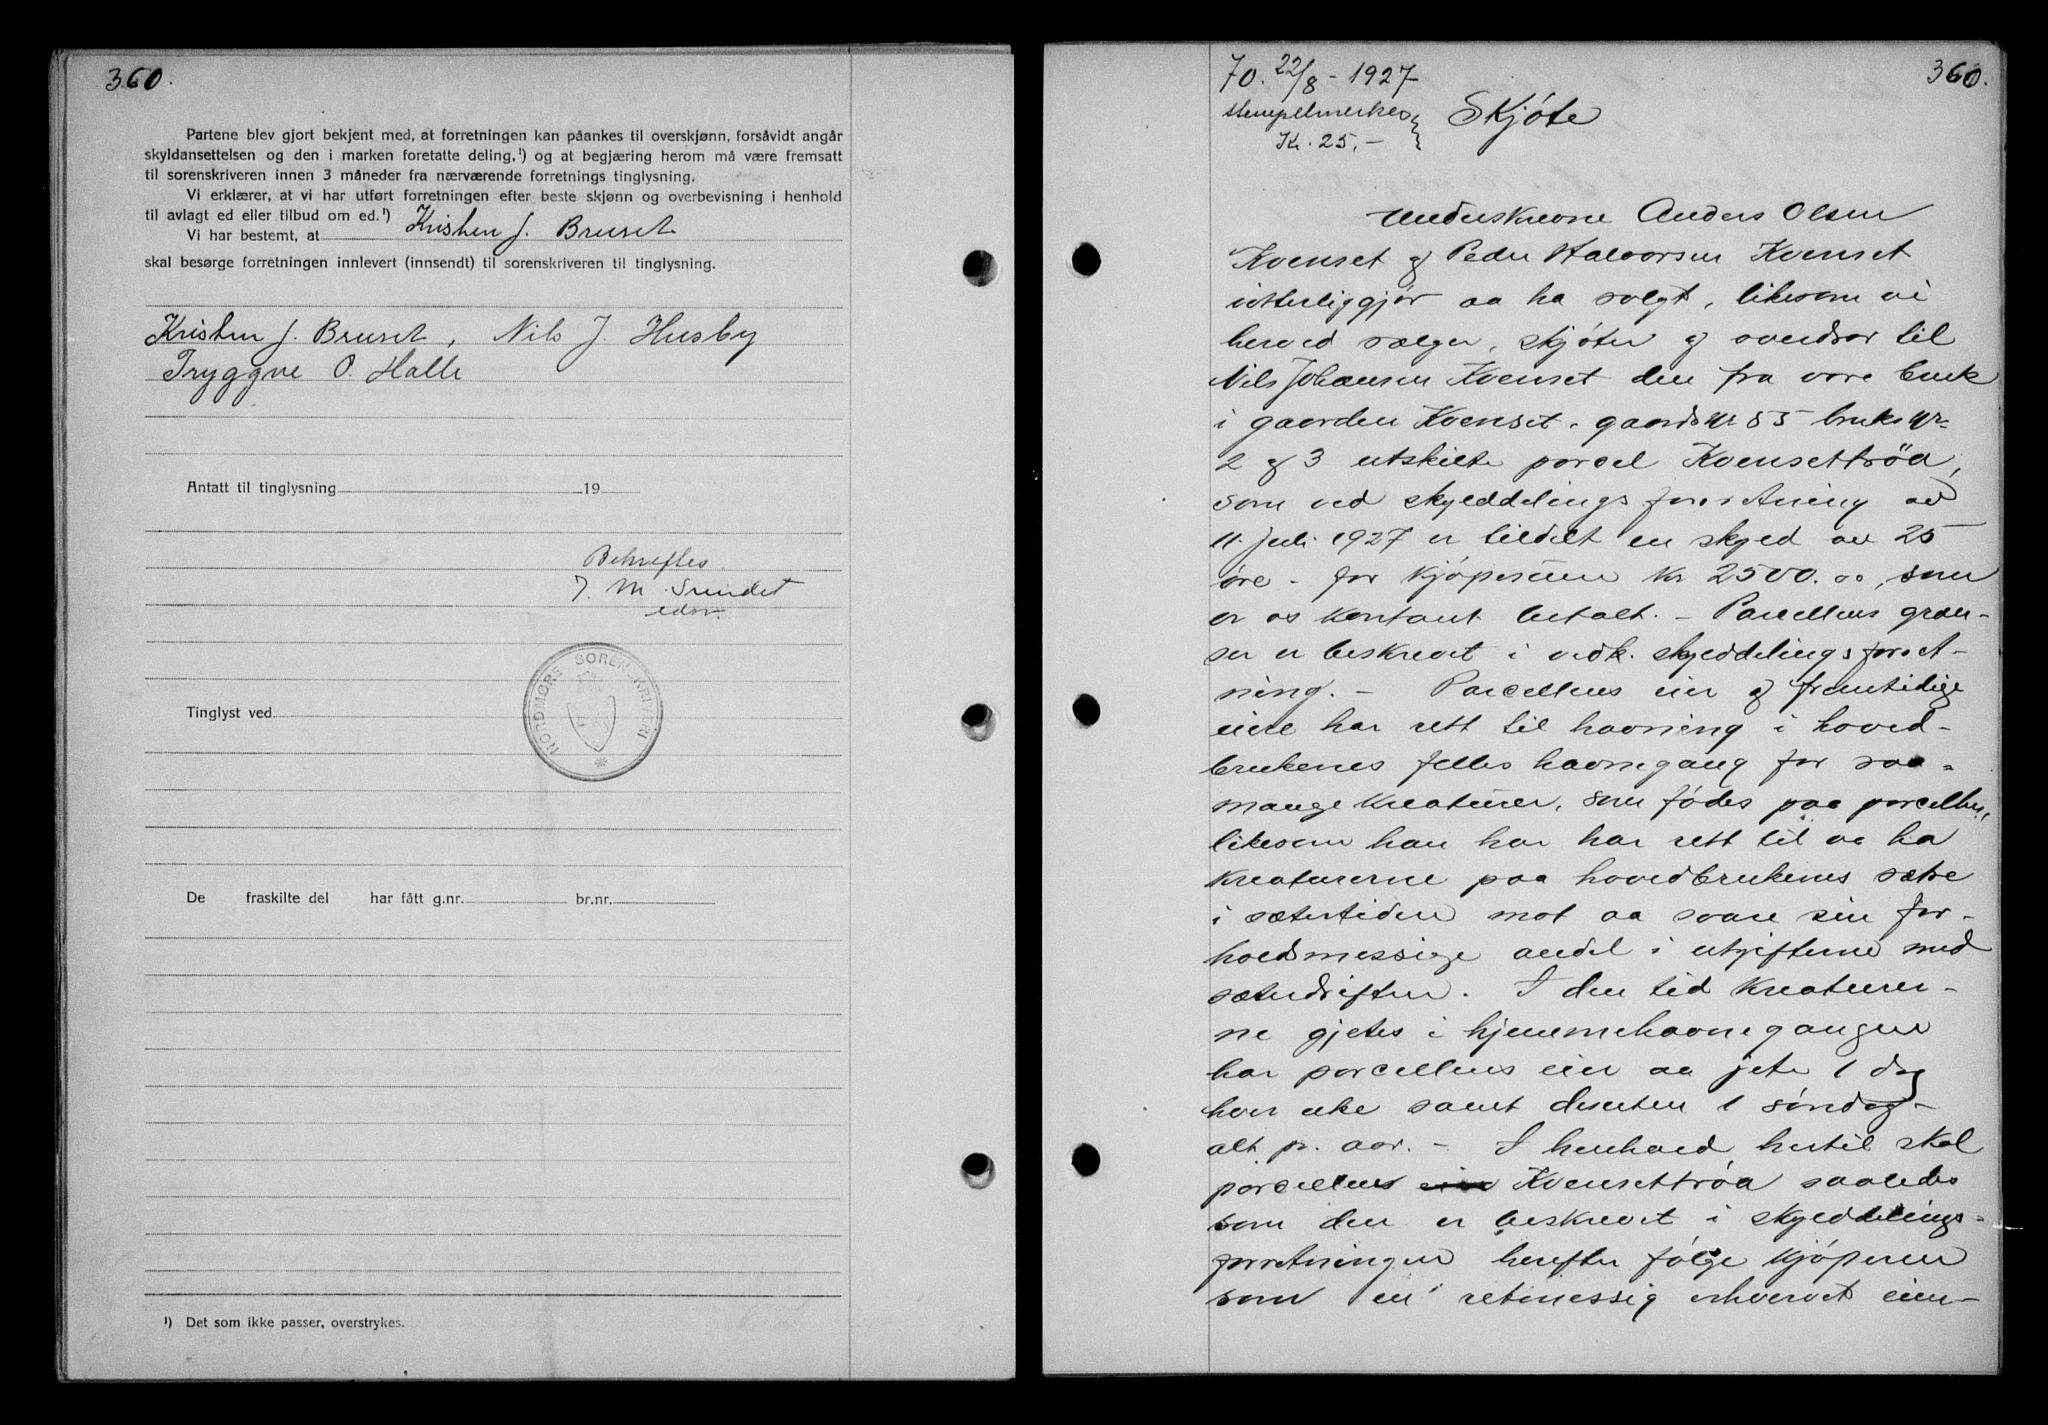 360.
Partene blev gjort bekjent med, at forretningen kan påankes til overskjønn, forsåvidt angår
skyldansettelsen og den i marken foretatte deling,¹) og at begjæring herom må være fremsatt
til sorenskriveren innen 3 måneder fra nærværende forretnings tinglysning.
Vi erklærer, at vi har utført forretningen efter beste skjønn og overbevisning i henhold
til avlagt ed eller tilbud om ed.¹)
Vi har bestemt, at Kristen J. Bruset
skal besørge forretningen innlevert (innsendt) til sorenskriveren til tinglysning.
Kristen J. Bruset, Nils J. Husby
Tryggve O. Halle
Antatt til tinglysning 19
Bekreftes.
J. M. Sundet
edsv.
NORDMØRE SORENSKRIVERI
Tinglyst ved
De fraskilte del har fått g.nr. br.nr.
¹) Det som ikke passer, overstrykes.
360.
70. 22/8 - 1927
stempelmerker
Kr. 25,-
Skjøte
Underskrevne Anders Olsen
Kvenset og Peder Halvorsen Kvenset
vitterliggjør aa ha solgt, likesom vi
herved sælger, skjøter og overdrar til
Nils Johansen Kvenset den fra vore bruk
i gaarden Kvenset, gaards nr 55 bruks nr
2 og 3 utskilte parcel Kvensettrøa,
som ved skylddelingsforretning av
11. juli 1927 er tildelt en skyld av 25
øre - for kjøpesum kr 2500.00, som
er os kontant betalt. - Parcellens græn-
ser er beskrevet i vedk. skylddelingsforret-
ning. - Parcellens eier og fremtidige
eiere har rett til havning i hoved-
brukenes felles havnegang for saa-
mange kreaturer, som fødes paa parcellen,
likesom han har har rett til aa ha
kreaturerne paa hovedbrukenes sætre
i sætertiden mot aa svare sin for-
holdsmessige andel i utgifterne med
sæterdriften. I den tid kreaturer-
ne gjetes i hjemmehavnegangen
har parcellens eier aa jete 1 dag
hver uke samt desuten 1 søndag
alt pr. aar. - I henhold hertil skal
parcellens Kvensettrøa saaledes
som den er beskrevet i skylddelings-
forretningen herefter følge kjøperen
som en retmessig erhvervet eien-